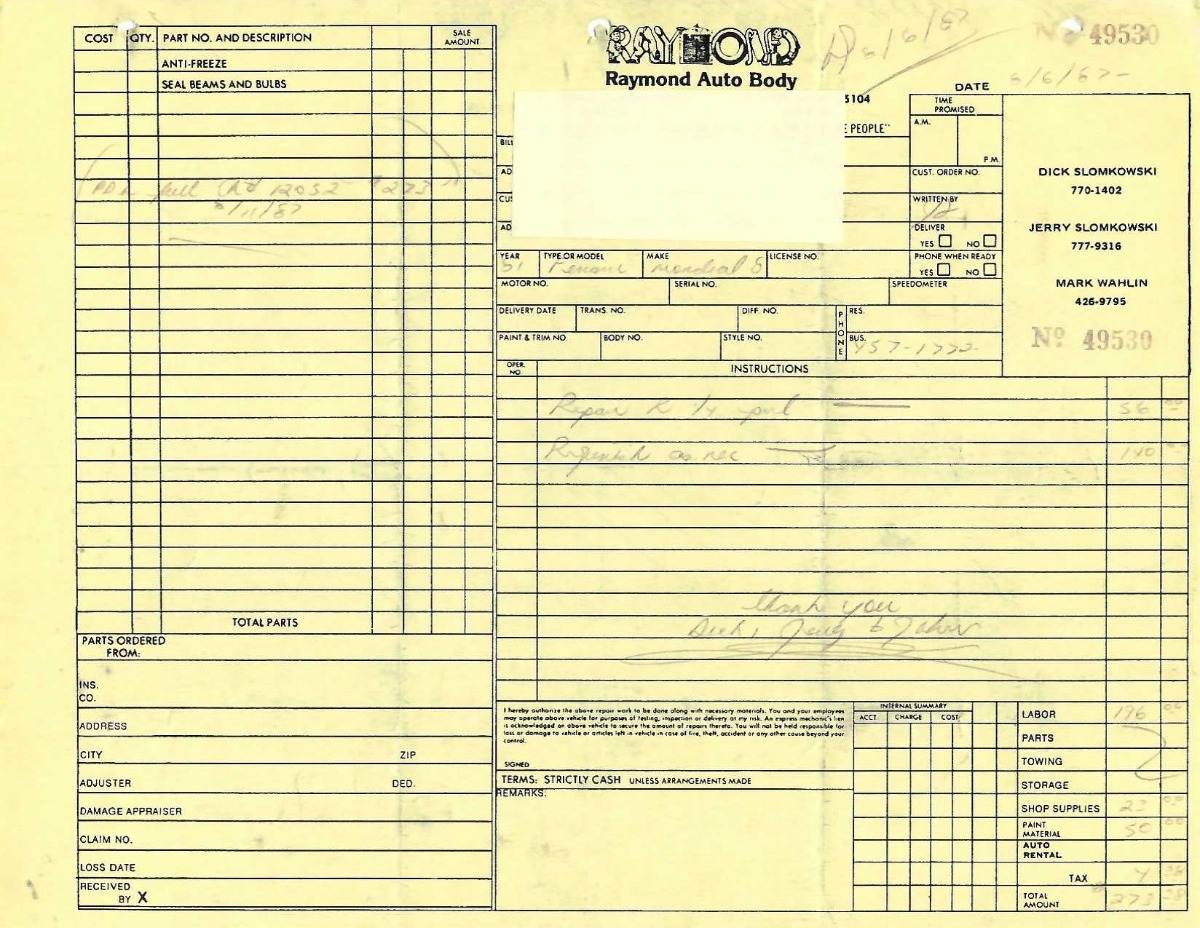 COST QTY. PART NO. AND DESCRIPTION SALE AMOUNT
ANTI-FREEZE
SEAL BEAMS AND BULBS
CK# 12052 $273
6/11/87
TOTAL PARTS
PARTS ORDERED FROM:
INS. CO.
ADDRESS
CITY ZIP
ADJUSTER DED.
DAMAGE APPRAISER
CLAIM NO.
LOSS DATE
RECEIVED BY X
RAYMOND
Raymond Auto Body
6/6/87
Nº 49530
DATE 6/6/87
5104
E PEOPLE"
BILL
AD
CUS
AD
TIME PROMISED
A.M.
P.M.
CUST. ORDER NO.
WRITTEN BY
DELIVER
YES NO
PHONE WHEN READY
YES NO
DICK SLOMKOWSKI
770-1402
JERRY SLOMKOWSKI
777-9316
MARK WAHLIN
426-9795
Nº 49530
YEAR TYPE OR MODEL MAKE LICENSE NO.
81 Ferrari Mondial 8
MOTOR NO. SERIAL NO. SPEEDOMETER
DELIVERY DATE TRANS. NO. DIFF. NO. PHONE RES.
PAINT & TRIM NO. BODY NO. STYLE NO. BUS.
OPER. NO. INSTRUCTIONS
Repair R 1/4 56 00
Refinish as nec 140 00
thank you
Dick, Jerry & John
I hereby authorize the above repair work to be done along with necessary materials. You and your employees
may operate above vehicle for purposes of testing, inspection or delivery at my risk. An express mechanic's lien
is acknowledged on above vehicle to secure the amount of repairs thereto. You will not be held responsible for
loss or damage to vehicle or articles left in vehicle in case of fire, theft, accident or any other cause beyond your
control.
SIGNED
TERMS: STRICTLY CASH UNLESS ARRANGEMENTS MADE
REMARKS:
INTERNAL SUMMARY
ACCT. CHARGE COST
LABOR 196 00
PARTS
TOWING
STORAGE
SHOP SUPPLIES 23 00
PAINT MATERIAL 50 00
AUTO RENTAL
TAX 4 38
TOTAL AMOUNT 273 38